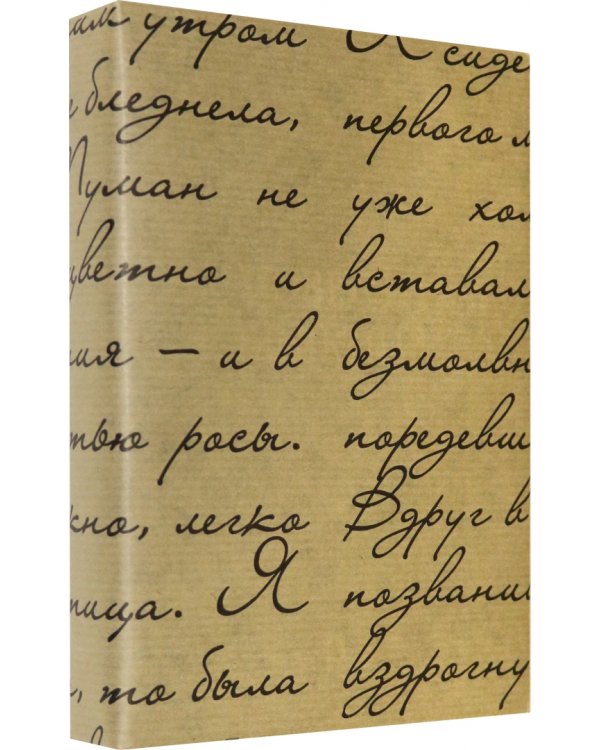 им утром Я сиде
бледнела, первого л
Туман не уже хол
цветно и вставал
ния — и в безмолвн
тью росы. поредевш
жно, легко Вдруг в
тица. Я позвани
, то была вздрогну